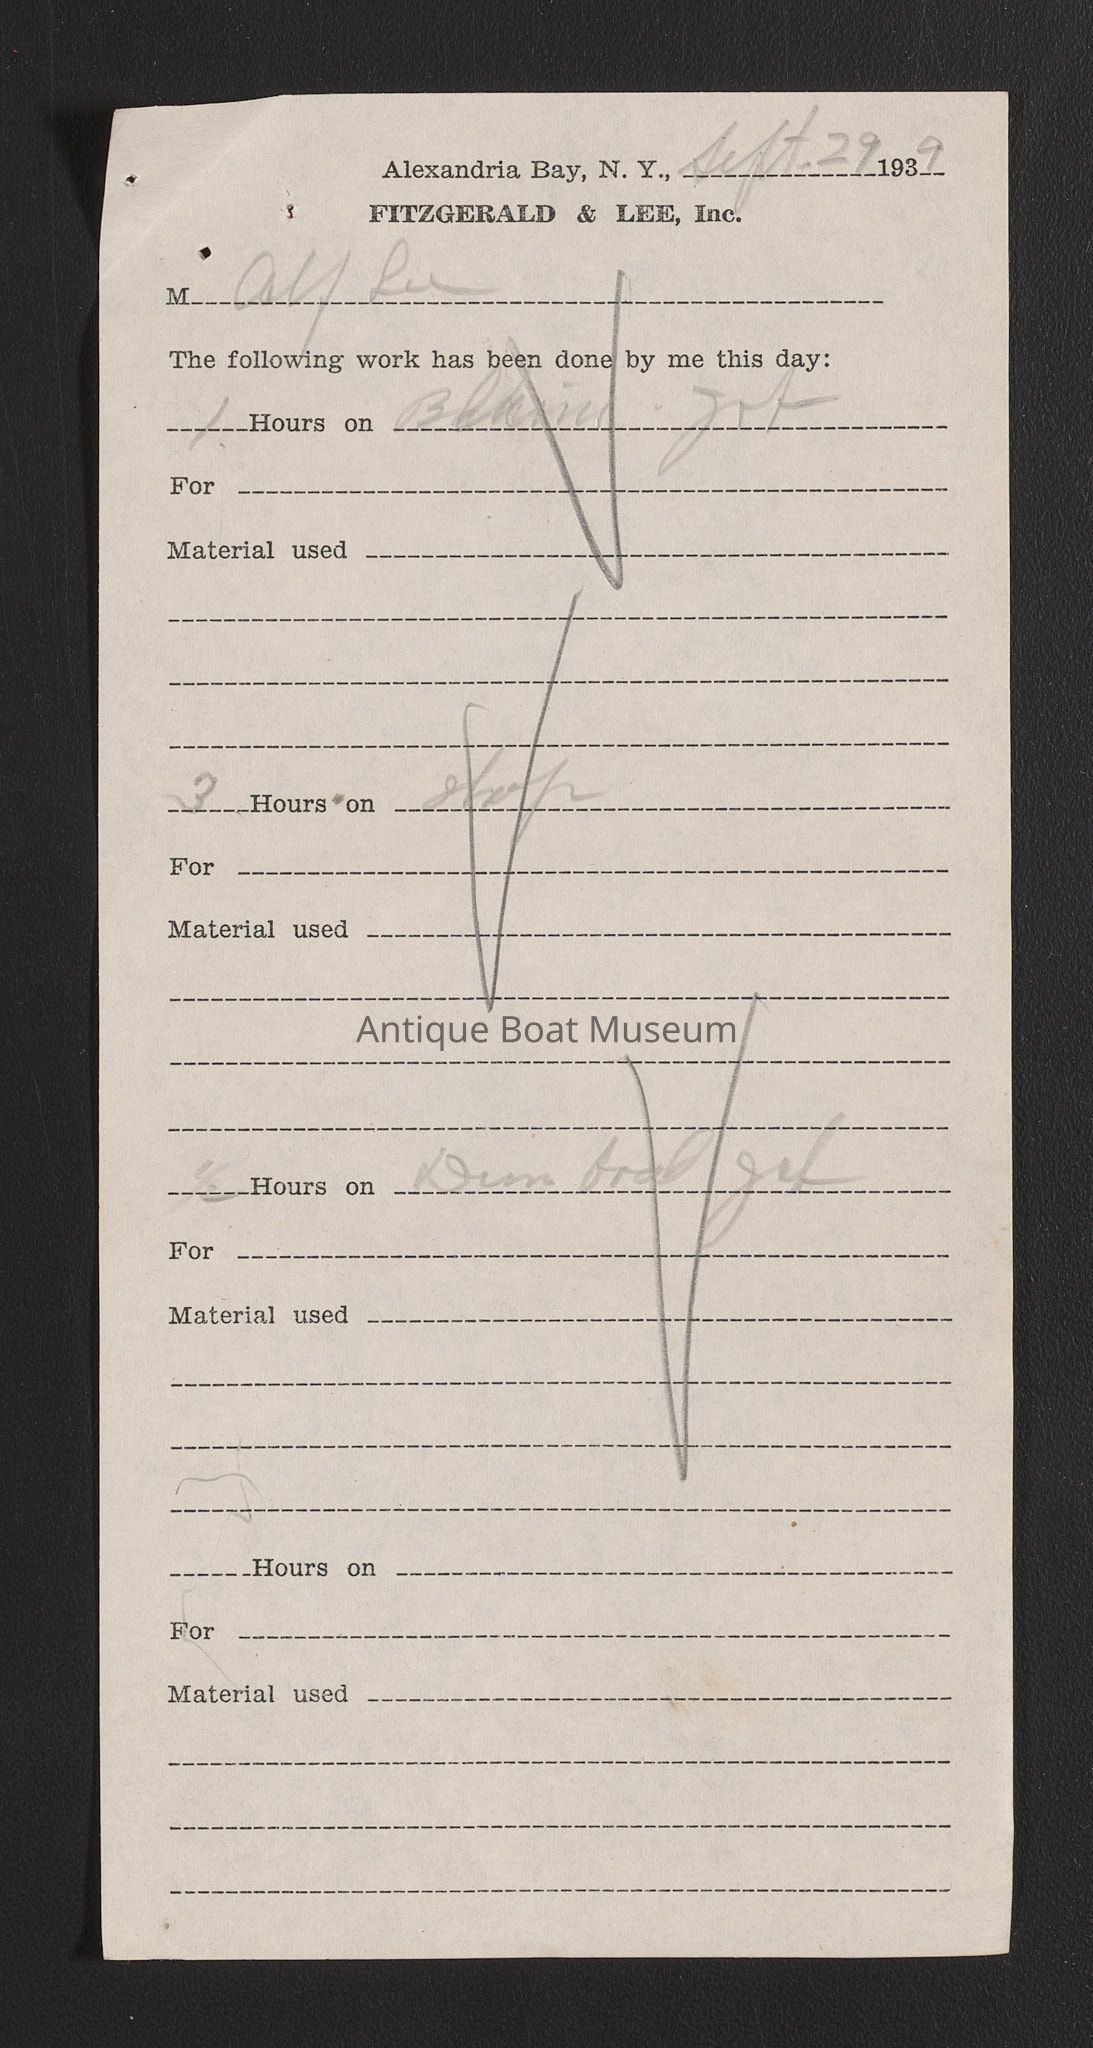 Alexandria Bay, N. Y., Sept. 29 1939
FITZGERALD & LEE, Inc.
M Alf Lee
The following work has been done by me this day:
1 Hours on
For
Material used
3 Hours on shop
For
Material used
Antique Boat Museum
½ Hours on
For
Material used
Hours on
For
Material used